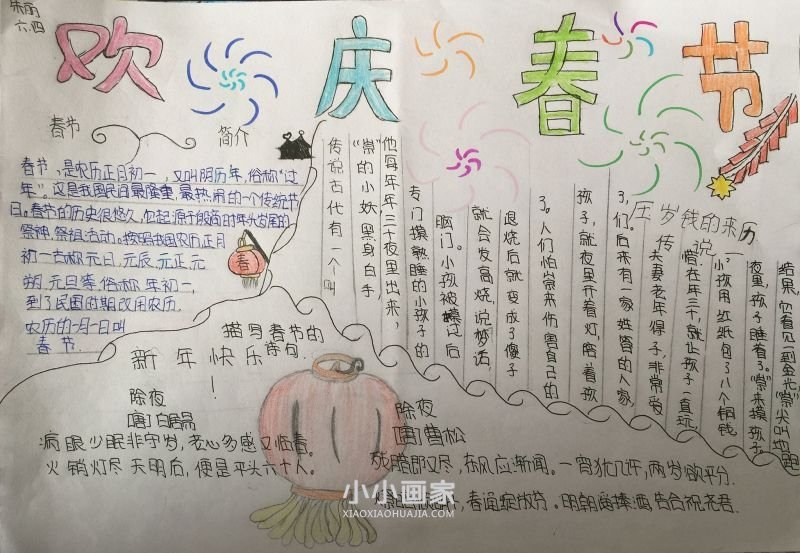 朱雨
六.四
欢庆春节
春节
简介
春节,是农历正月初一,又叫阴历年,俗称“过
年”。这是我国民间最隆重,最热闹的一个传统节
日。春节的历史很悠久,它起源于殷商时期年头岁尾的
祭神,祭祖活动。按照我国农历正月
初一古称元日,元辰,元正,元
朔,元旦等,俗称年初一,
到了民国时期改用农历.
农历的一月一日叫
春节.
压岁钱的来历
传说古代有一个叫
“祟”的小妖,黑身白手,
他每年年三十夜里出来,
专门摸熟睡的小孩子的
脑门。小孩被摸过后
就会发高烧,说梦话,
退烧后就变成了傻子
了。人们怕祟来伤害自己的
孩子,就夜里开着灯陪着孩
子们。后来有一家姓管的人家,
夫妻老年得子,非常爱
在年三十,就让孩子一直玩
小孩用红纸包了八个铜钱
夜里,孩子睡着了。“祟”来摸孩子,
结果,它看见一到金光,“祟”尖叫地跑
描写春节的
诗句.
新年快乐!
除夜
[唐]白居易
病眼少眠非守岁,老心多感又临春。
火销灯尽天明后,便是平头六十人。
除夜
[唐]曹松
残腊即又尽,东风应渐闻。一宵犹几许,两岁欲平分.
春通绽放芬。明朝
小小画家
XIAOXIAOHUAJIA.COM